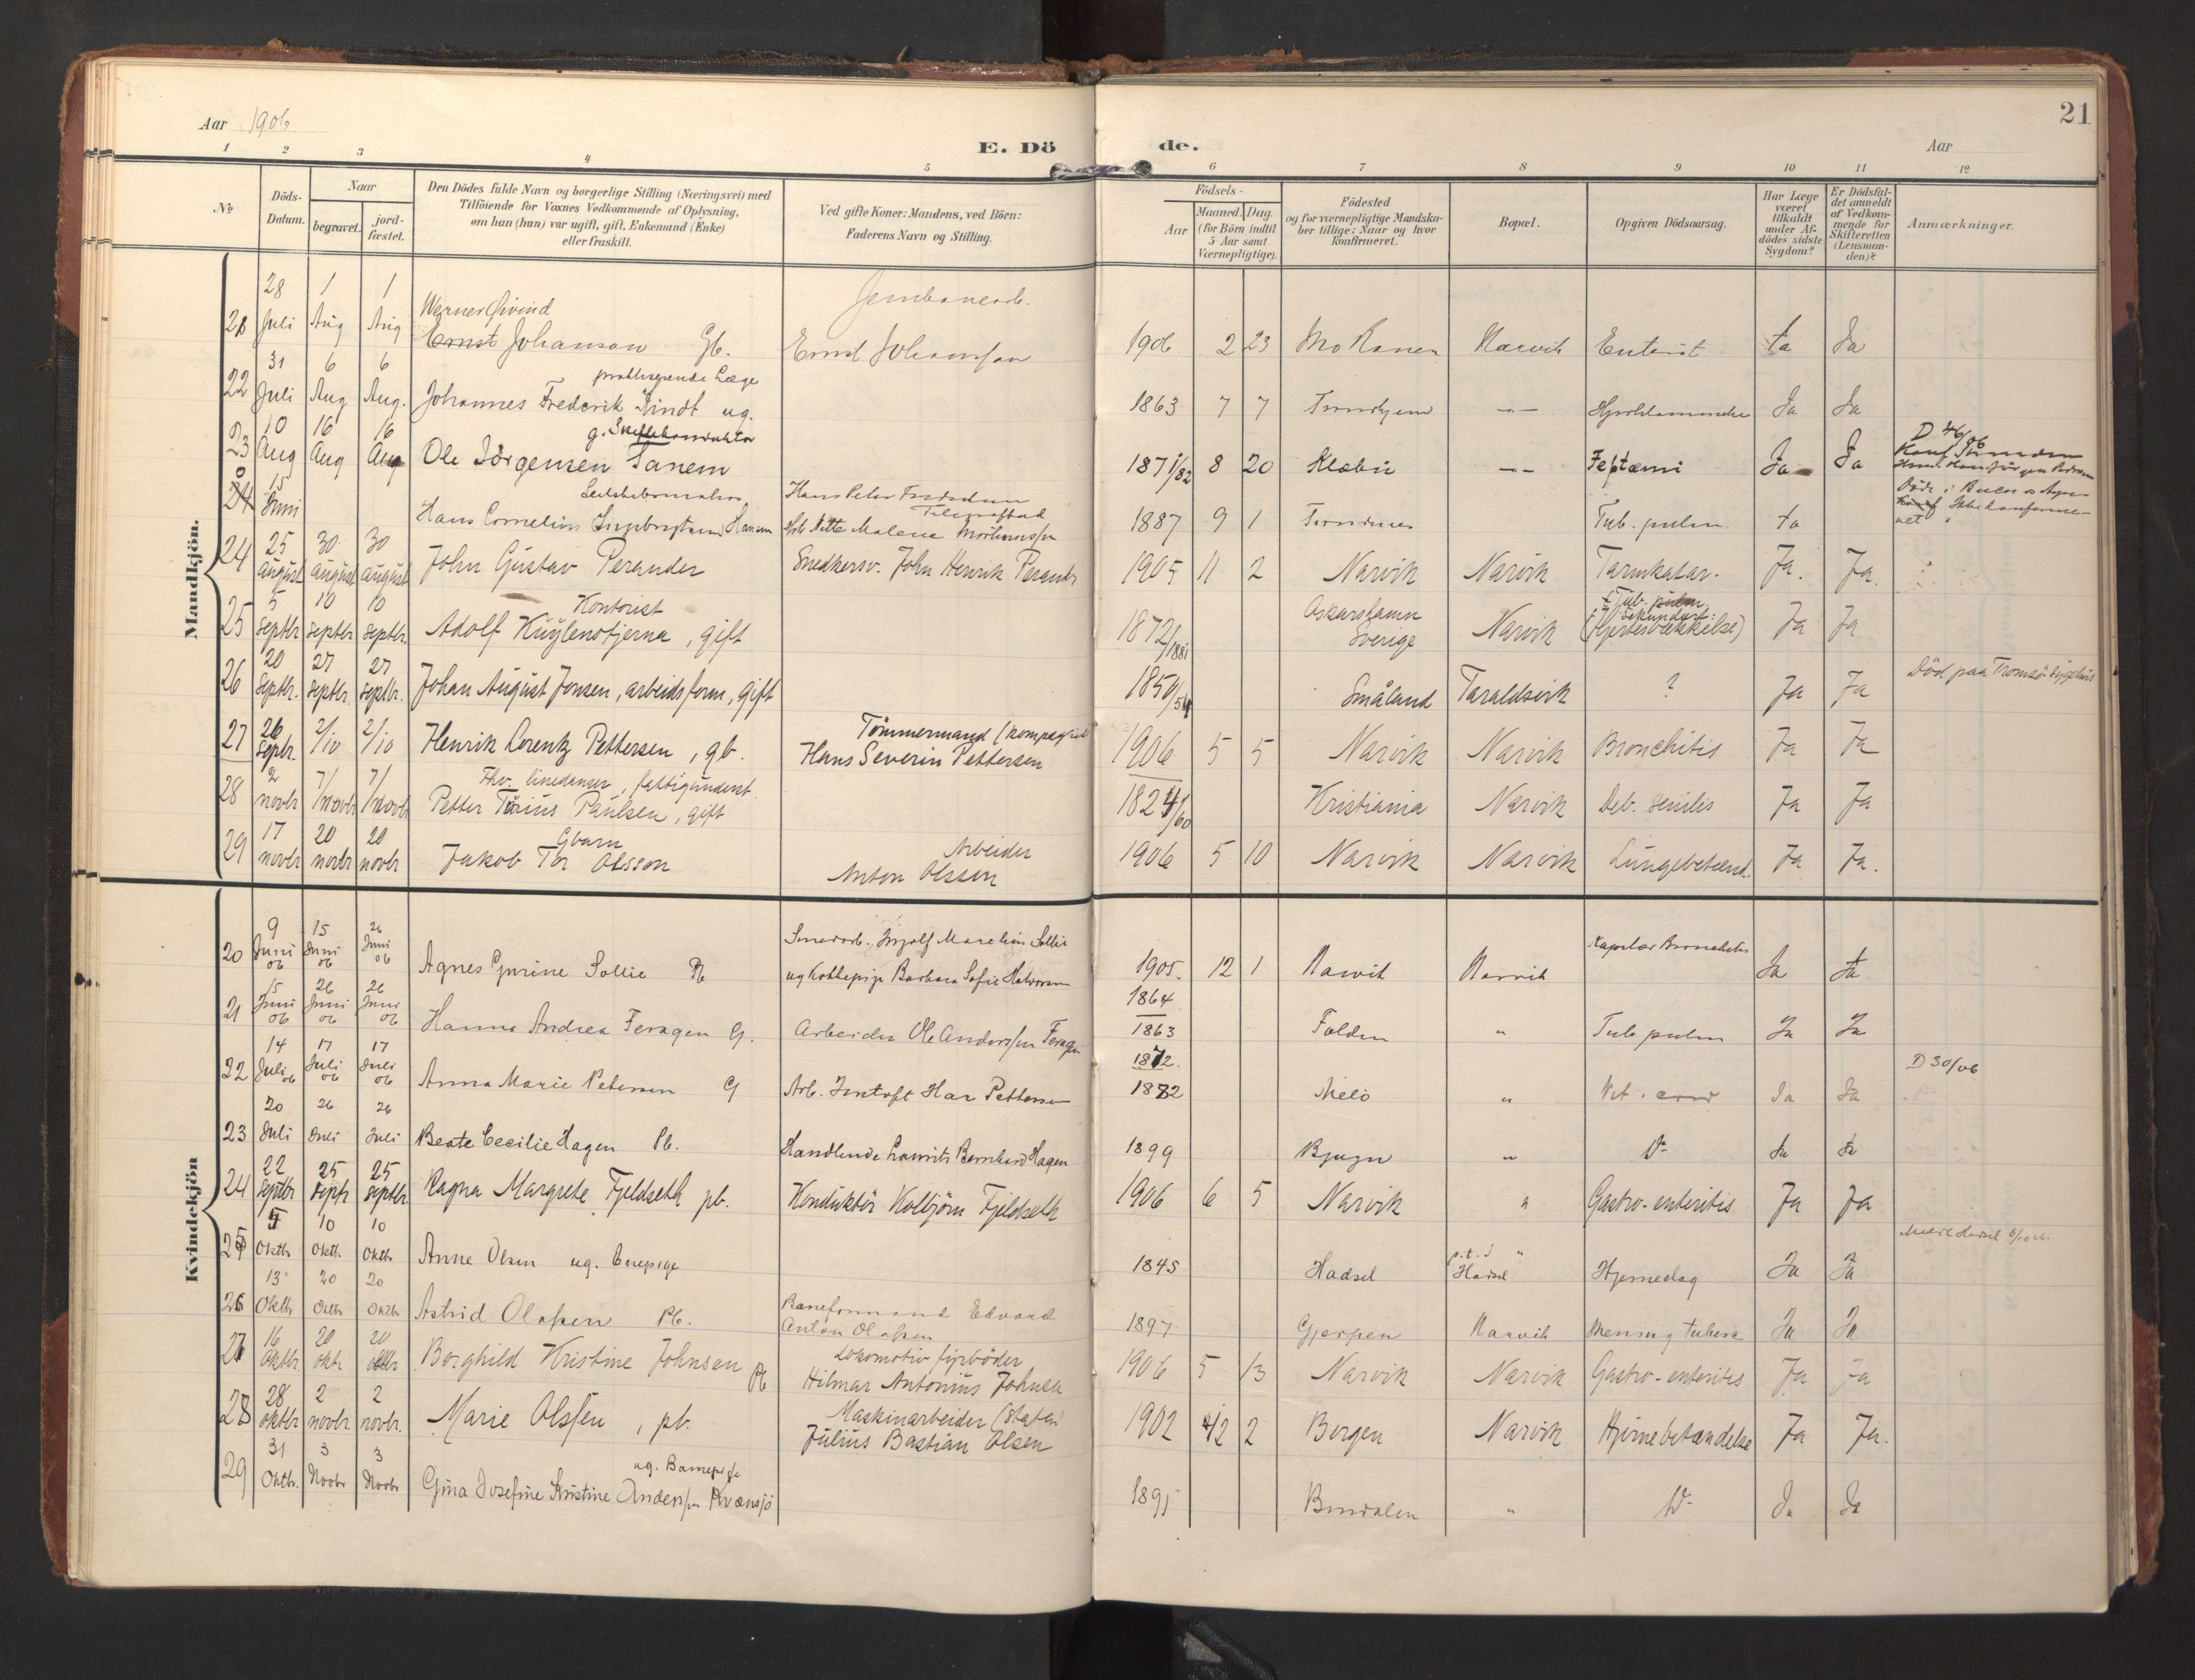 Aar 1906
E. Dö
de.
Aar
21
1 2 3 4 5 6 7 8 9 10 11 12
№
Döds-
Datum.
Naar
begravet.
jord-
fæstet.
Den Dödes fulde Navn og borgerlige Stilling (Næringsvei) med
Tilföiende for Voxnes Vedkommende af Oplysning,
om han (hun) var ugift, gift, Enkemand (Enke)
eller fraskilt.
Ved gifte Koner: Mandens, ved Börn:
Faderens Navn og Stilling.
Födsels-
Aar
Maaned. Dag.
(for Börn indtil
5 Aar samt
Værnepligtige).
Födested
og for værnepligtige Mandska-
ber tillige: Naar og hvor
konfirmeret.
Bopæl.
Opgiven Dödsaarsag.
Har Læge
været
tilkaldt
under Af-
dödes sidste
Sygdom?
Er Dödsfal-
det anmeldt
af Vedkom-
mende for
Skifteretten
(Lensman-
den)?
Anmærkninger.
Mandkjön.
28 1 1 Jernbanearb.
Werner Øivind
21 Juli Aug Aug Ernst Johanson Gb. Ernst Johansson 1906 2 23 Mo Ranen Narvik Enterit Ja Ja
31 6 6 praktiserende Læge
22 Juli Aug Aug. Johannes Frederik Kindt ug. 1863 7 7 Trondhjem -"- Ja Ja
10 16 16 g.
23 Aug Aug Aug Ole Jörgensen Tanem 1871/82 8 20 Klæbu -"- Septæmi Ja Ja D 46/06
15
24 Juni Hans Cornelius Hansen Hans Peter 1887 9 1 Tromsø Tub. pulm Ja
25 30 30
24 August August August John Gustav Perander Snedkersv. John Henrik Perander 1905 11 2 Narvik Narvik Tarmkatar. Ja. Ja.
5 10 10 Kontorist Tub. pulm.
25 Septbr Septbr Septbr. Adolf Kuylenstjerna, gift 1872/1881 Oskarshamn Sverige Narvik (Hjertesvækkelse) Ja Ja
20 27 27
26 Septbr. Septbr. Septbr. Johan August Jonsen, arbeidsform., gift 1850/54 Småland Taraldsvik ? Ja Ja Död paa Tromsö Sygehus
26 Tömmermand
27 Septbr. 2/10 2/10 Henrik Lorentz Pettersen, gb. Hans Severin Pettersen 1906 5 5 Narvik Narvik Bronchitis Ja Ja
2 7/ 7/ Fhv. linedanser, fattigunderst.
28 novbr novbr novbr Petter Tarius Paulsen, gift 1824/60 Kristiania Narvik Deb. senilis Ja Ja
17 20 20 Gbarn Arbeider
29 novbr novbr novbr Jakob Tor Olsson Anton Olsson 1906 5 10 Narvik Narvik Lungebetænd. Ja Ja.
Kvindekjön
9 15 26
20 Juni Juni Juni Agnes Gurine Sollie Pb Ingolf Marelius Sollie 1905. 12 1 Narvik Narvik Kapilær Bronchitis Ja Ja
06 06 06 og Kokkepige Barbara Sofie Halvorsen
15 26 26 1864
21 Juni Juni Juni Hanna Andrea Feragen G. Arbeider Ole Anderssen Feragen 1863 Folden " Tub pulm Ja Ja
06 06 06
14 17 17 1872.
22 Juli Juli Juli Anna Marie Petersen G Arb. Har Pettersen 1872 Melö " Vit. cord Ja Ja D 30/06
06 06 06
20 26 26
23 Juli Juli Juli Beate Cecilie Hagen Pb. Handlende Laurits Bernhard Hagen 1899 Bjugn " D- Ja Ja
22 25 25
24 Septbr Septr Septbr Ragna Margrete Fjeldseth pb. Konduktör Kolbjörn Fjeldseth 1906 6 5 Narvik " Gastro-enteritis Ja Ja
5 10 10
25 Oktbr Oktbr. Oktbr Anne Olsen ug. 1845 Hadsel p.t. i Hadsel " Hjerneslag Ja Ja
13 20 20
26 Oktbr Oktbr Oktbr Astrid Olafsen Pb. Baneformand Edvard Anton Olafsen 1897 Gjerpen Narvik Mening tuberc Ja Ja
16 20 20 Lokomotivfyrböder
27 Oktbr. Oktr. Oktbr Borghild Kristine Johnsen Pb Hilmar Antonius Johnsen 1906 5 13 Narvik Narvik Gastro-enteritis Ja Ja
28 2 2 Maskinarbeider (Staten)
28 Oktbr novbr. novbr. Marie Olssen, pb. Julius Bastian Olsen 1902 12 2 Bergen Narvik Hjernebetændelse Ja Ja.
31 3 3 ug. Barnepige
29 Oktbr. Novbr Novbr Gina Josefine Kristine Anderssen Kvænsjö 1895 Bindalen " D- Ja Ja